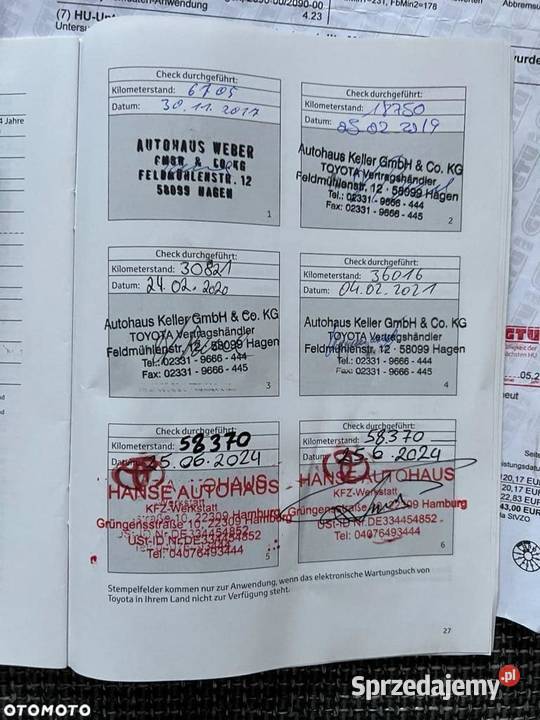 (7) HU-Unt
Untersu
4.23
FbMin2=178
Abbremsu
4 Jahre
Check durchgeführt:
Kilometerstand: 6705
Datum: 30.11.2017
AUTOHAUS WEBER
GMBH & CO.KG
FELDMÜHLENSTR. 12
58099 HAGEN
1
Check durchgeführt:
Kilometerstand: 18750
Datum: 05.02.2019
Autohaus Keller GmbH & Co. KG
TOYOTA Vertragshändler
Feldmühlenstr. 12 · 58099 Hagen
Tel.: 02331 - 9666 - 444
Fax: 02331 - 9666 - 445
2
Check durchgeführt:
Kilometerstand: 30821
Datum: 24.02.2020
Autohaus Keller GmbH & Co. KG
TOYOTA Vertragshändler
Feldmühlenstr. 12 · 58099 Hagen
Tel.: 02331 - 9666 - 444
Fax: 02331 - 9666 - 445
3
Check durchgeführt:
Kilometerstand: 36016
Datum: 04.02.2021
Autohaus Keller GmbH & Co. KG
TOYOTA Vertragshändler
Feldmühlenstr. 12 · 58099 Hagen
Tel.: 02331 - 9666 - 444
Fax: 02331 - 9666 - 445
4
Check durchgeführt:
Kilometerstand: 58370
Datum: 25.06.2024
HANSE AUTOHAUS
KFZ-Werkstatt
Grüngensstraße 10, 22309 Hamburg
USt-ID Nr.DE334454852
Tel: 04076493444
5
Check durchgeführt:
Kilometerstand: 58370
Datum: 25.6.2024
HANSE AUTOHAUS
KFZ-Werkstatt
Grüngensstraße 10, 22309 Hamburg
USt-ID Nr.DE334454852
Tel: 04076493444
6
Stempelfelder kommen nur zur Anwendung, wenn das elektronische Wartungsbuch von
Toyota in Ihrem Land nicht zur Verfügung steht.
27
GTÜ
nächsten HU
.05.2
neut
120,17 EUR
20,17 EUR
22,83 EUR
43,00 EUR
StVZO
OTOMOTO
Sprzedajemy.pl